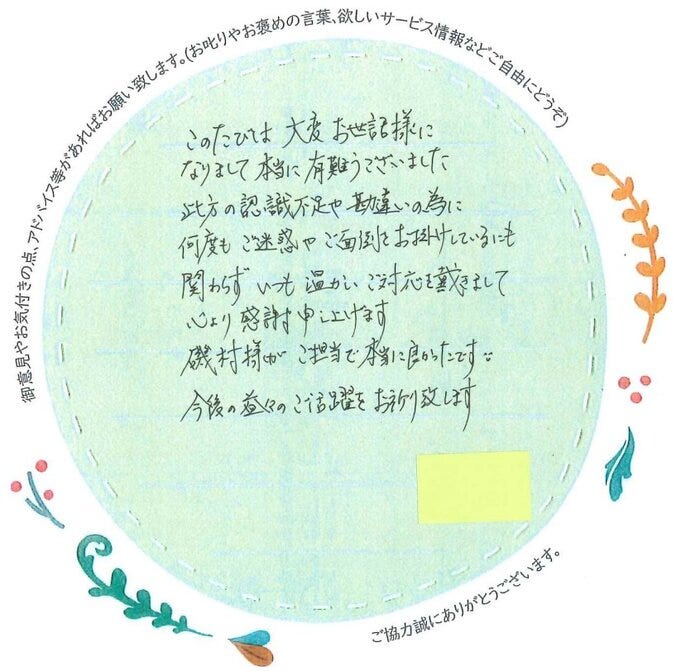 御意見やお気付きの点、アドバイス等があればお願い致します。(お叱りやお褒めの言葉、欲しいサービス情報などご自由にどうぞ)
このたびは 大変 お世話様に
なりまして 本当に 有難うございました
此方の認識不足や 勘違いの為に
何度も ご迷惑や ご面倒をお掛けしているにも
関わらず いつも 温かい ご対応を戴きまして
心より 感謝 申し上げます
磯村様が ご担当で 本当に良かったです
今後の益々のご活躍をお祈り致します
ご協力誠にありがとうございます。